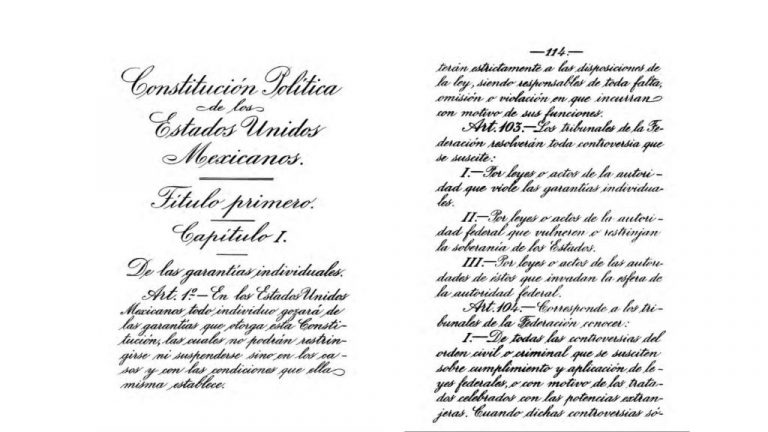 Constitución Política
de los
Estados Unidos
Mexicanos.
Título primero.
Capítulo I.
De las garantías individuales.
Art. 1º.— En los Estados Unidos
Mexicanos todo individuo gozará de
las garantías que otorga esta Consti-
tución, las cuales no podrán restrin-
girse ni suspenderse sino en los ca-
sos y con las condiciones que ella
misma establece.
—114.—
terán estrictamente a las disposiciones de
la ley, siendo responsables de toda falta,
omisión o violación en que incurran
con motivo de sus funciones.
Art. 103.—Los tribunales de la Fe-
deración resolverán toda controversia que
se suscite:
I.—Por leyes o actos de la autori-
dad que viole las garantías individua-
les.
II.—Por leyes o actos de la autori-
dad federal que vulneren o restrinjan
la soberanía de los Estados.
III.—Por leyes o actos de las autori-
dades de éstos que invadan la esfera de
la autoridad federal.
Art. 104.—Corresponde a los tri-
bunales de la Federación conocer:
I.—De todas las controversias del
orden civil o criminal que se susciten
sobre cumplimiento y aplicación de le-
yes federales, o con motivo de los trata-
dos celebrados con las potencias extran-
jeras. Cuando dichas controversias só-